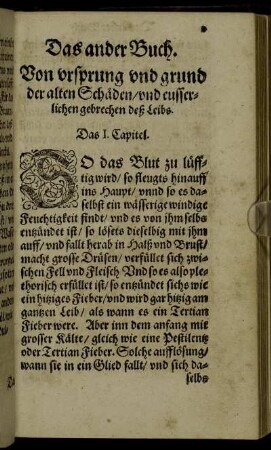 Das ander Buch.
Von vrsprung vnd grund
der alten Schäden/vnd eusser-
lichen gebrechen deß Leibs.
Das I. Capitel.
SO das Blut zu lüff-
tig wird/ so fleugts hinauff
ins Haupt/ vnnd so es da-
selbst ein wässerige windige
Feuchtigkeit findt/ vnd es von jhm selbs
entzündet ist/ so lösets dieselbig mit jhm
auff/ vnd fallt herab in Halß vnd Brust/
macht grosse Drüsen/ verfüllet sich zwi-
schen Fell vnd Fleisch Vnd so es also ple-
thorisch erfüllet ist/ so entzündet sichs wie
ein hitziges Fieber/ vnd wird gar hitzig am
gantzen Leib/ als wann es ein Tertian
Fieber were. Aber inn dem anfang mit
grosser Kälte/ gleich wie eine Pestilentz
oder Tertian Fieber. Solche aufflösung/
wann sie in ein Glied fallt/ vnd sich da-
selbs